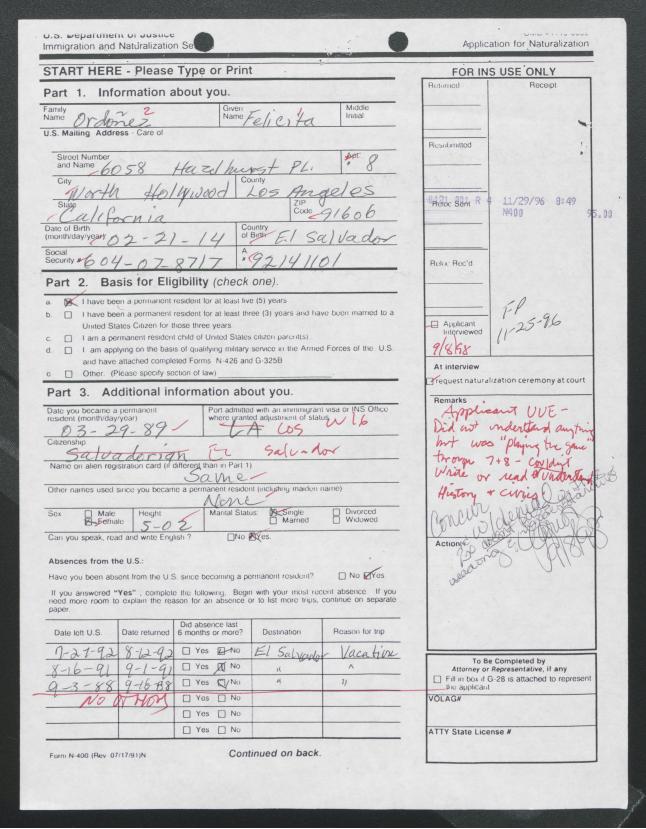 U.S. Department of Justice
Immigration and Naturalization Se
Application for Naturalization
START HERE - Please Type or Print
Part 1. Information about you.
Family Name Ordoñez 2 Given Name Felicita Middle Initial
U.S. Mailing Address - Care of
Street Number and Name 6058 Hazelhurst PL. Apt. # 8
City North Hollywood County Los Angeles
State California ZIP Code 91606
Date of Birth (month/day/year) 02-21-14 Country of Birth El Salvador
Social Security # 604-07-8717 A # 92141101
Part 2. Basis for Eligibility (check one).
a. I have been a permanent resident for at least five (5) years
b. I have been a permanent resident for at least three (3) years and have been married to a
United States Citizen for those three years.
c. I am a permanent resident child of United States citizen parent(s).
d. I am applying on the basis of qualifying military service in the Armed Forces of the U.S.
and have attached completed Forms N-426 and G-325B
e. Other. (Please specify section of law)
Part 3. Additional information about you.
Date you became a permanent resident (month/day/year) 03-29-89
Port admitted with an immigrant visa or INS Office where granted adjustment of status. LA LOS W16
Citizenship Salvaderian El Salvador
Name on alien registration card (if different than in Part 1)
Same
Other names used since you became a permanent resident (including maiden name)
None
Sex Male Female Height 5-02 Marital Status: Single Married Divorced Widowed
Can you speak, read and write English ? No Yes.
Absences from the U.S.:
Have you been absent from the U.S. since becoming a permanent resident? No Yes
If you answered "Yes", complete the following. Begin with your most recent absence. If you
need more room to explain the reason for an absence or to list more trips, continue on separate
paper.
Date left U.S. Date returned Did absence last 6 months or more? Destination Reason for trip
7-27-92 8-12-92 Yes No El Salvador Vacation
8-16-91 9-1-91 Yes No " "
9-3-88 9-16-88 Yes No " "
NO OTHERS
Yes No
Yes No
Yes No
Form N-400 (Rev 07/17/91)N
Continued on back.
FOR INS USE ONLY
Returned Receipt
Resubmitted
Reloc Sent 11/29/96 8:49
N400 95.00
Reloc Rec'd
F-P
11-25-96
Applicant Interviewed
9/8/98
At interview
request naturalization ceremony at court
Remarks
Applicant UUE -
Did not understand anything
but was "playing the game"
through 7+8 - couldn't
write or read & understand
History & civics
Concur
Action
To Be Completed by
Attorney or Representative, if any
Fill in box if G-28 is attached to represent
the applicant
VOLAG#
ATTY State License #